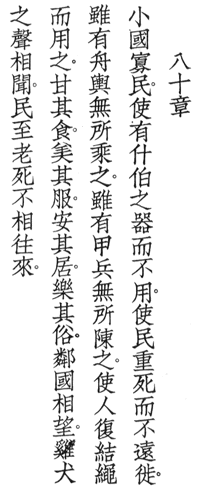 八十章
小國寡民。使有什伯之器而不用。使民重死而不遠徙。
雖有舟輿無所乘之。雖有甲兵無所陳之。使人復結繩
而用之。甘其食。美其服。安其居。樂其俗。鄰國相望。雞犬
之聲相聞。民至老死不相往來。